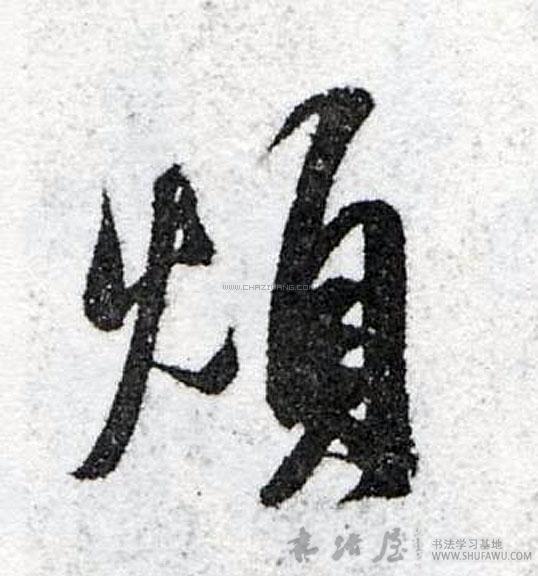 煩
WWW.CHAZIWANG.COM
书法屋 书法学习基地
WWW.SHUFAWU.COM